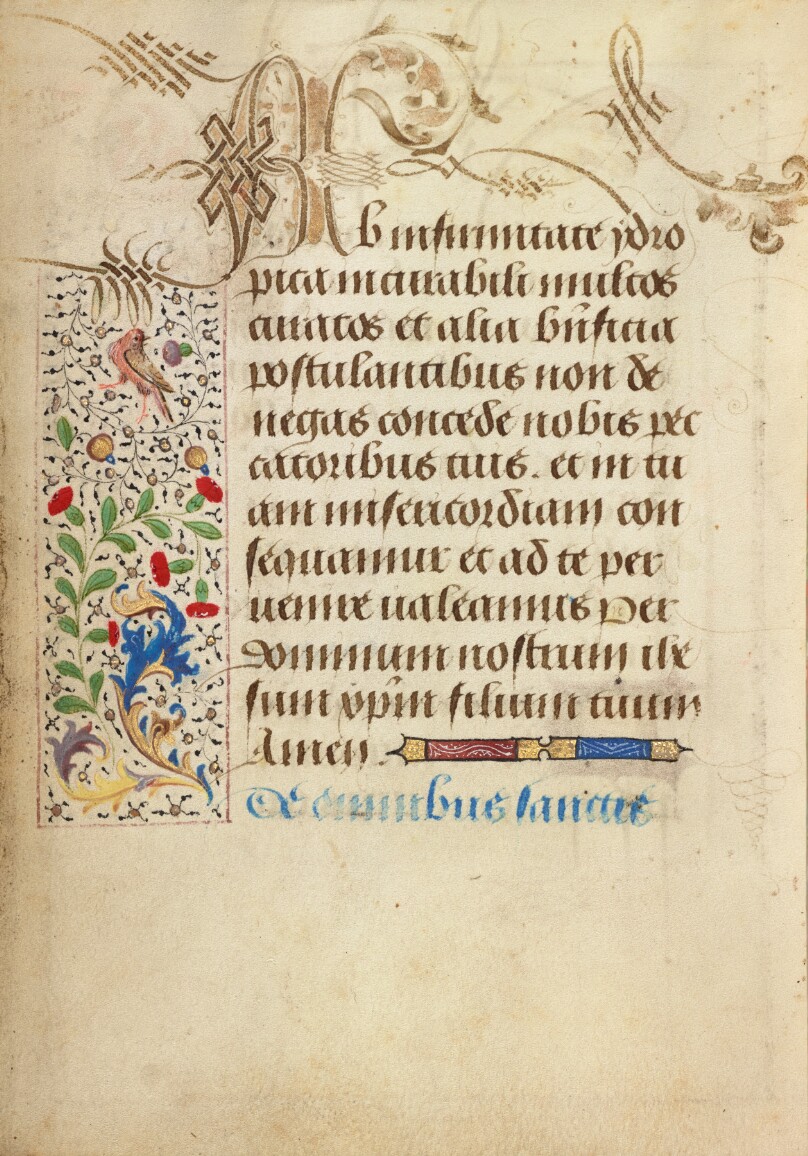 Ab infirmitate ydro
pica incurabili multos
curatos et alia bn̄ficia
postulantibus non de
negas concede nobis pec
catoribus tuis. et in tu
am misericordiam con
sequamur et ad te per
uenire ualeamus Per
dominum nostrum ihe
sum xp̄m filium tuum
Amen.
De omnibus sanctis